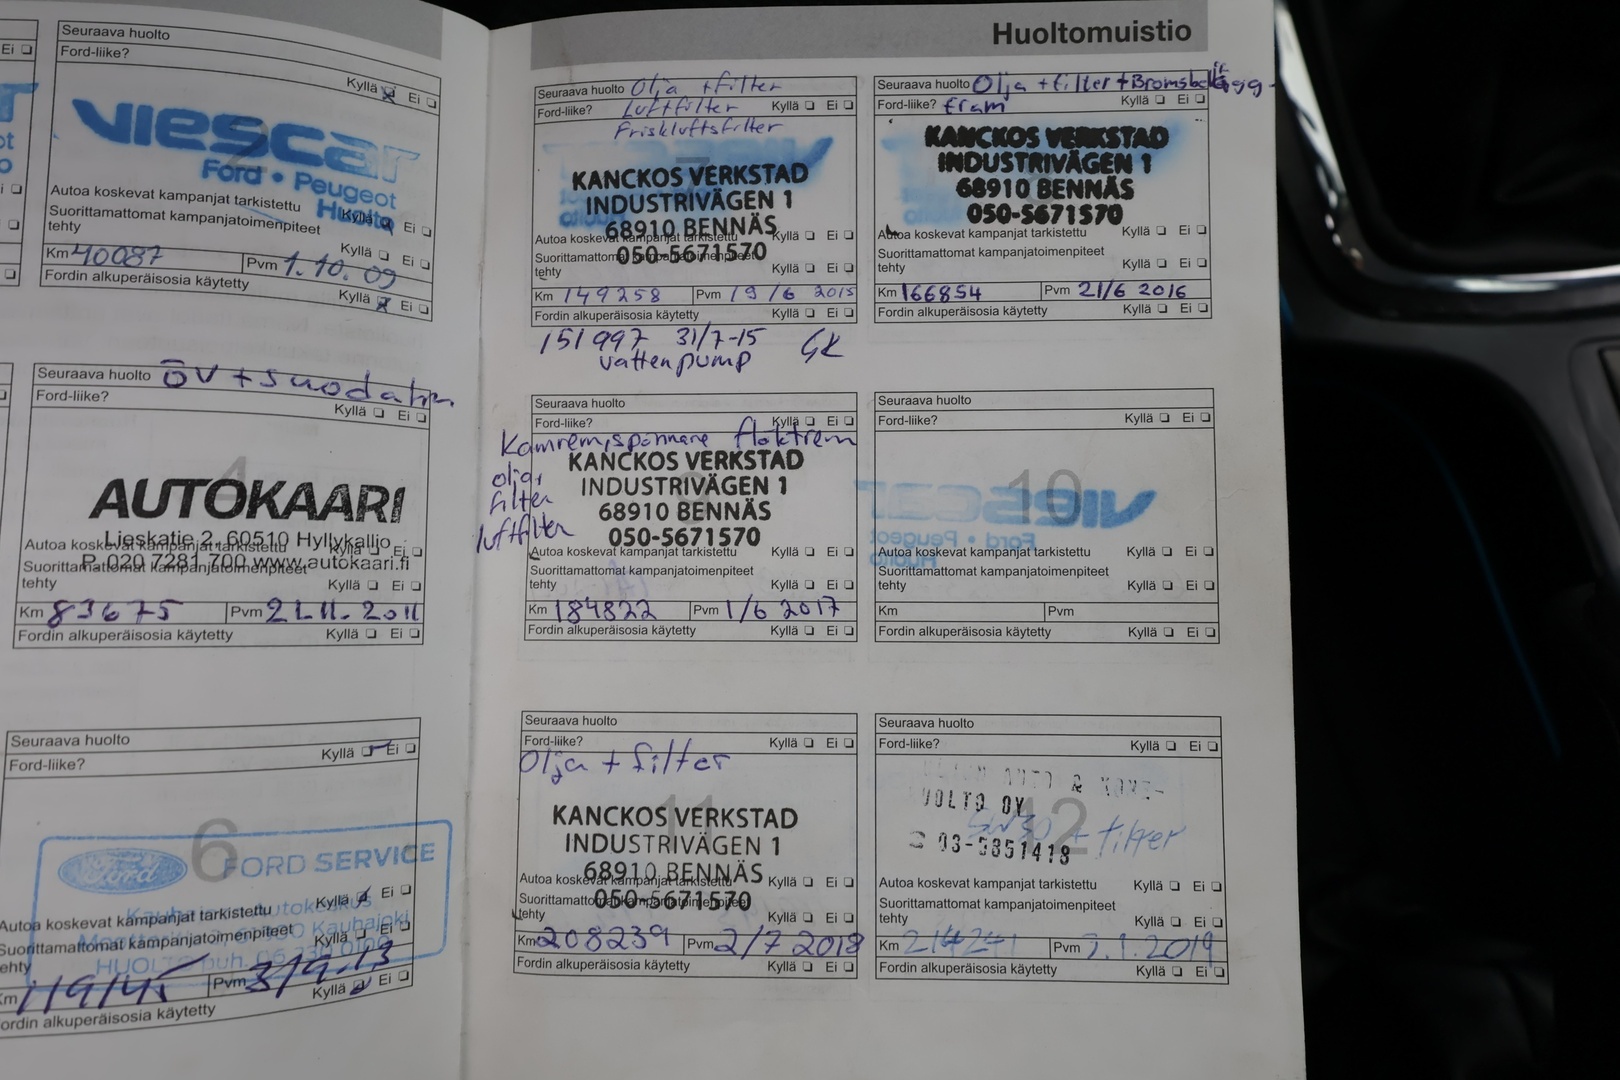 Huoltomuistio
Seuraava huolto
Ford-liike?
Kyllä Ei
viescar
Ford • Peugeot
Huolto
Autoa koskevat kampanjat tarkistettu Kyllä Ei
Suorittamattomat kampanjatoimenpiteet
tehty Kyllä Ei
Km 40087 Pvm 1.10.09
Fordin alkuperäisosia käytetty
Kyllä Ei
Seuraava huolto ÖV + suodatin
Ford-liike?
Kyllä Ei
4
AUTOKAARI
Lieskatie 2, 60510 Hyllykallio
P. 020 7281 700 www.autokaari.fi
Autoa koskevat kampanjat tarkistettu Kyllä Ei
Suorittamattomat kampanjatoimenpiteet
tehty Kyllä Ei
Km 83675 Pvm 21.11.2011
Fordin alkuperäisosia käytetty Kyllä Ei
Seuraava huolto
Ford-liike? Kyllä Ei
6
Ford
FORD SERVICE
Autoa koskevat kampanjat tarkistettu Kyllä Ei
Suorittamattomat kampanjatoimenpiteet Kyllä Ei
tehty
Km 119145 Pvm 3/9-13
Fordin alkuperäisosia käytetty Kyllä Ei
Seuraava huolto Olja + filter
Ford-liike? Luftfilter Kyllä Ei
Friskluftsfilter
KANCKOS VERKSTAD
INDUSTRIVÄGEN 1
68910 BENNÄS
050-5671570
Autoa koskevat kampanjat tarkistettu Kyllä Ei
Suorittamattomat kampanjatoimenpiteet
tehty Kyllä Ei
Km 149258 Pvm 19/6 2015
Fordin alkuperäisosia käytetty Kyllä Ei
151997 31/7-15 GK
vattenpump
Seuraava huolto Olja + filter + Bromsbelägg
Ford-liike? fram Kyllä Ei
KANCKOS VERKSTAD
INDUSTRIVÄGEN 1
68910 BENNÄS
050-5671570
Autoa koskevat kampanjat tarkistettu Kyllä Ei
Suorittamattomat kampanjatoimenpiteet
tehty Kyllä Ei
Km 166854 Pvm 21/6 2016
Fordin alkuperäisosia käytetty Kyllä Ei
Seuraava huolto
Ford-liike? Kyllä Ei
Kamremispännare fläktrem
olja,
filter
luftfilter
9
KANCKOS VERKSTAD
INDUSTRIVÄGEN 1
68910 BENNÄS
050-5671570
Autoa koskevat kampanjat tarkistettu Kyllä Ei
Suorittamattomat kampanjatoimenpiteet
tehty Kyllä Ei
Km 184822 Pvm 1/6 2017
Fordin alkuperäisosia käytetty Kyllä Ei
Seuraava huolto
Ford-liike? Kyllä Ei
10
Autoa koskevat kampanjat tarkistettu Kyllä Ei
Suorittamattomat kampanjatoimenpiteet
tehty Kyllä Ei
Km Pvm
Fordin alkuperäisosia käytetty Kyllä Ei
Seuraava huolto
Ford-liike? Kyllä Ei
Olja + filter
11
KANCKOS VERKSTAD
INDUSTRIVÄGEN 1
68910 BENNÄS
050-5671570
Autoa koskevat kampanjat tarkistettu Kyllä Ei
Suorittamattomat kampanjatoimenpiteet
tehty Kyllä Ei
Km 208239 Pvm 2/7 2018
Fordin alkuperäisosia käytetty Kyllä Ei
Seuraava huolto
Ford-liike? Kyllä Ei
12
OY
5W30 + filter
03-5851418
Autoa koskevat kampanjat tarkistettu Kyllä Ei
Suorittamattomat kampanjatoimenpiteet
tehty Kyllä Ei
Km 214241 Pvm 2019
Fordin alkuperäisosia käytetty Kyllä Ei